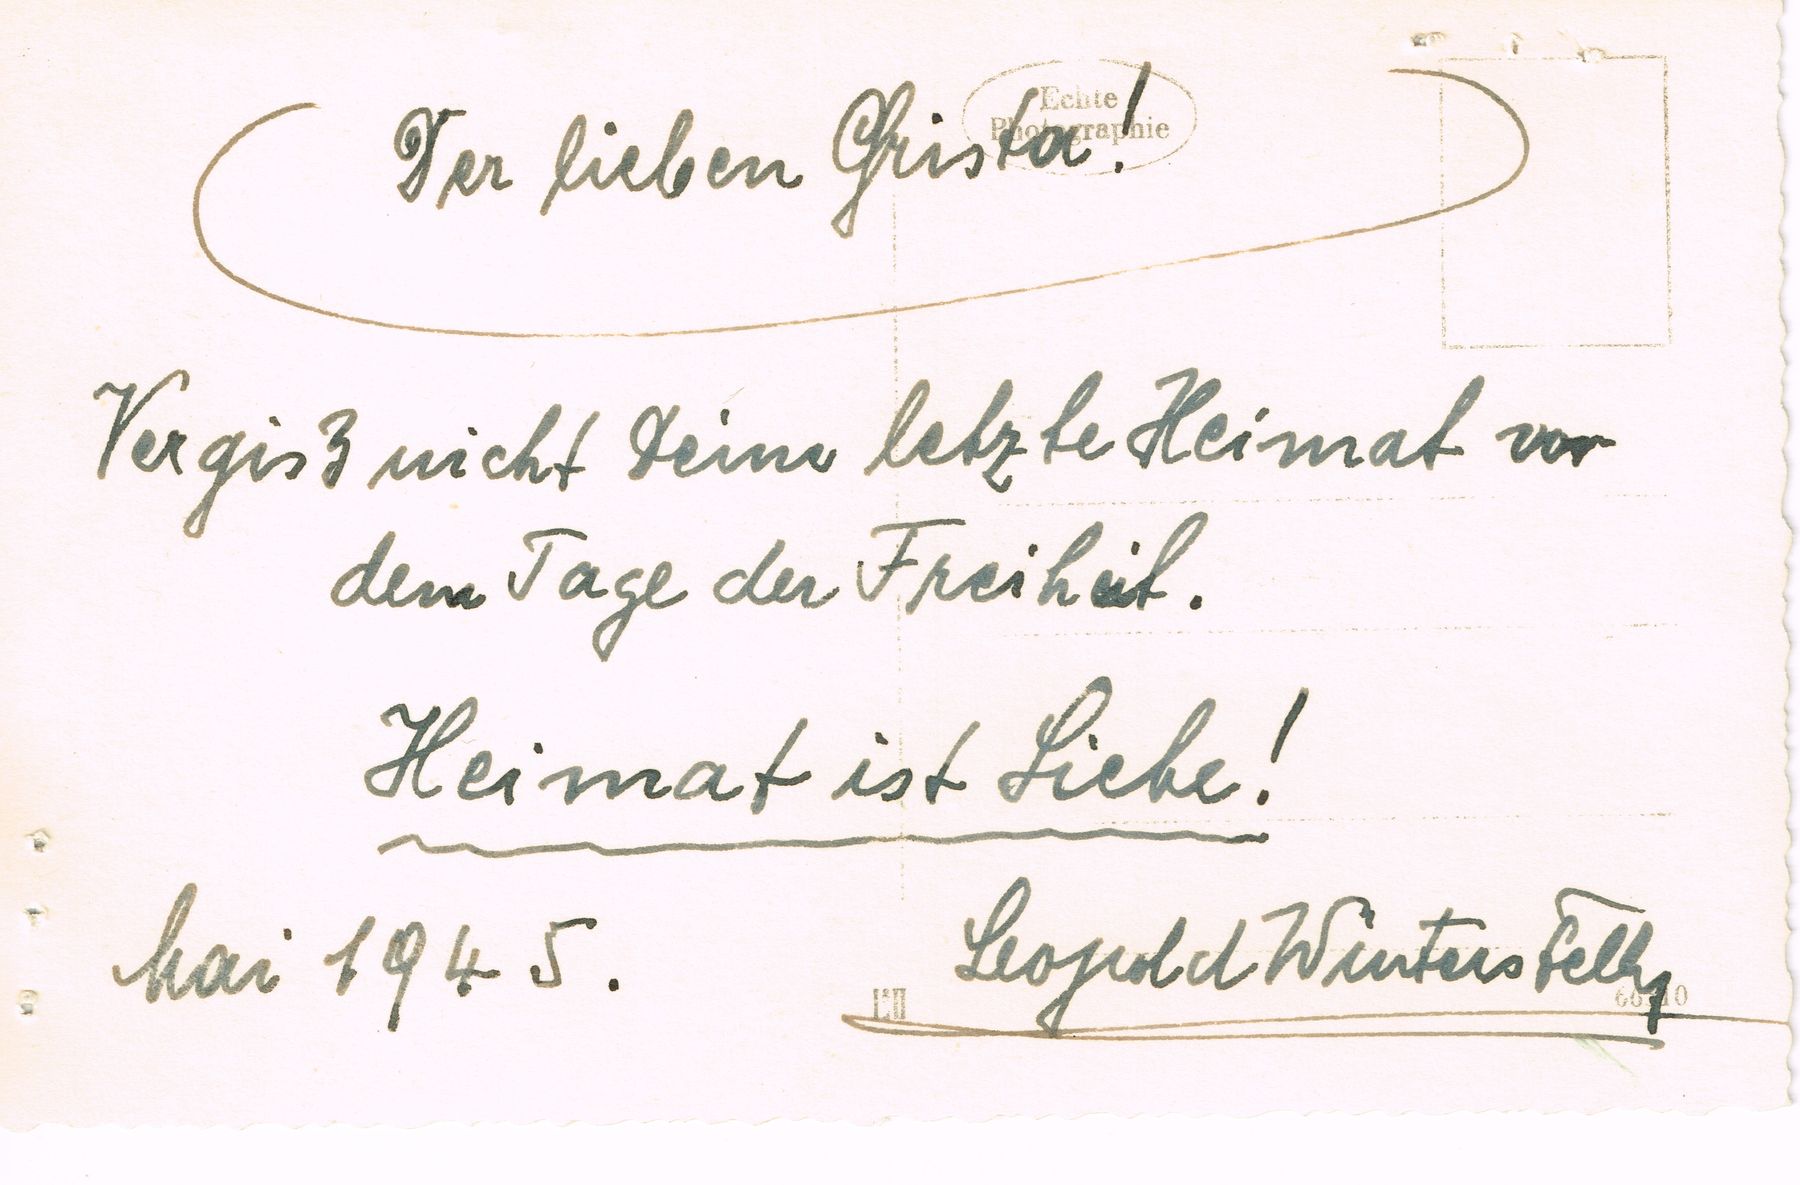 Echte
Photographie
Der lieben Grista!
Vergiß nicht Deine letzte Heimat vor
dem Tage der Freiheit.
Heimat ist Liebe!
Mai 1945.
Leopold